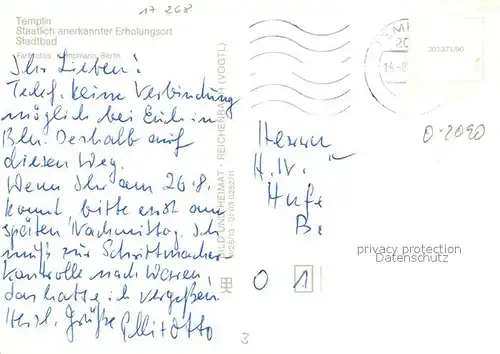 17 268
Templin
Staatlich anerkannter Erholungsort
Stadtbad
Farbfotos: Kampmann, Berlin
Ihr Lieben!
Telef. keine Verbindung
möglich bei Euch in
Bln. Deshalb auf
diesen Weg.
Wenn Ihr am 26.8.
kommt, bitte erst am
späten Nachmittag. Ich
muß zur Schrittmacher-
kontrolle nach Waren,
das hatte ich vergeßen!
Herzl. Grüße Elli + Otto
BILD UND HEIMAT · REICHENBACH (VOGTL)
TEMP
20
14-8
301371/90
0-2090
Herrn
H.
Hufe
Be
privacy protection
Datenschutz
O 1
3